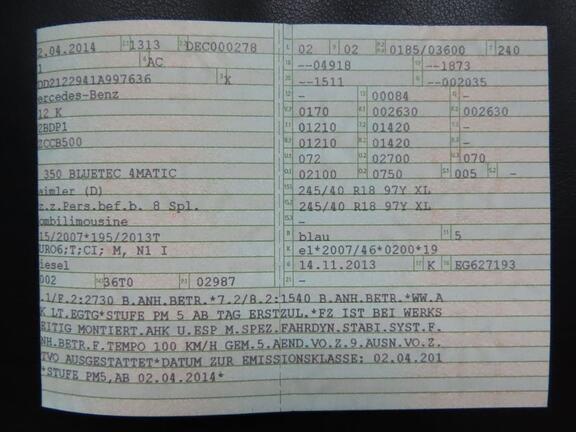 2.04.2014 1313 DEC000278
1 AC
DD2122941A997636 X
ercedes-Benz
12 K
2BDP1
ZCCB500
350 BLUETEC 4MATIC
aimler (D)
z.z.Pers.bef.b. 8 Spl.
ombilimousine
15/2007*195/2013T
URO6;T;CI; M, N1 I
iesel
002 36T0 02987
L 02 9 02 0185/03600 T 240
18 --04918 19 --1873
20 --1511 --002035
12 - 13 00084 -
0170 002630 002630
01210 01420 -
01210 01420 -
072 02700 070
02100 0750 005 -
245/40 R18 97Y XL
245/40 R18 97Y XL
-
R blau 11 5
K e1*2007/46*0200*19
6 14.11.2013 17 K 16 EG627193
21 -
.1/F.2:2730 B.ANH.BETR.*7.2/8.2:1540 B.ANH.BETR.*WW.A
K LT.EGTG*STUFE PM 5 AB TAG ERSTZUL.*FZ IST BEI WERKS
EITIG MONTIERT.AHK U.ESP M.SPEZ.FAHRDYN.STABI.SYST.F.
NH.BETR.F.TEMPO 100 KM/H GEM.5.AEND.VO.Z.9.AUSN.VO.Z.
TVO AUSGESTATTET*DATUM ZUR EMISSIONSKLASSE: 02.04.201
*STUFE PM5,AB 02.04.2014*